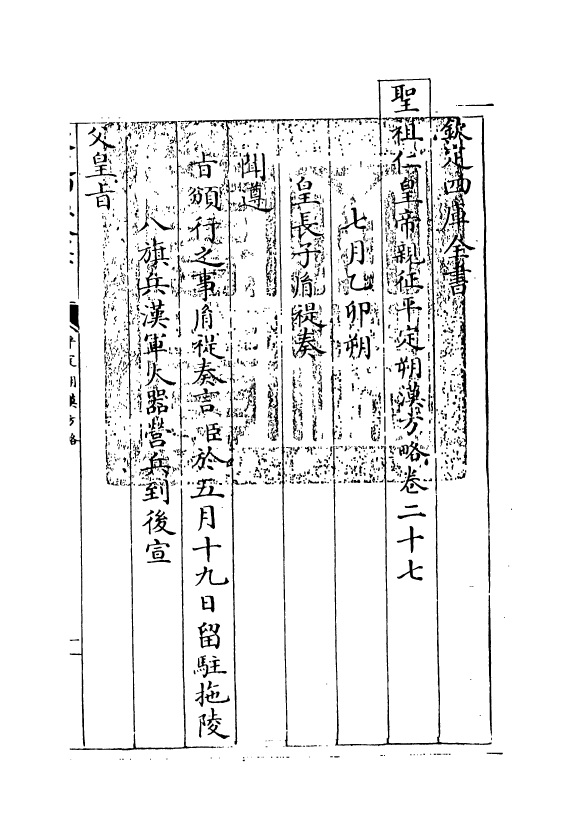 欽定四庫全書
聖祖仁皇帝親征平定朔漠方略卷二十七
七月乙卯朔
皇長子𦙍禔奏
聞遵
㫖頒行之事𦙍禔奏言臣於五月十九日留駐拖陵
八旗兵漢軍火器營兵到後宣
父皇㫖